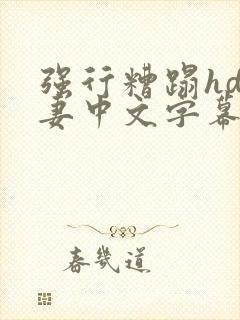 强行糟蹋hd
妻中文字幕
春几道